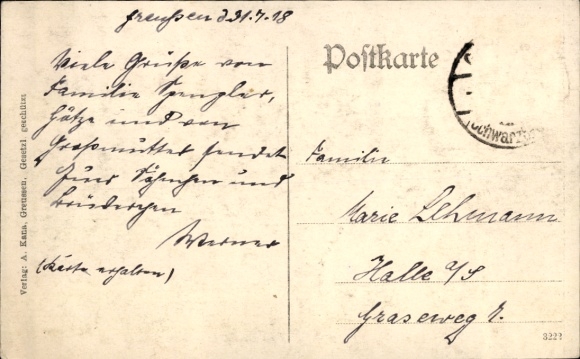 Greußen d 31.7.18
Viele Grüße von
Familie Spengler,
Götze und von
Großmutter sendet
Euer Söhnchen und
Brüderchen
Werner
(Karte erhalten)
Verlag: A. Kana, Greussen. Gesetzl. geschützt
Postkarte
(Schwarzb
Familie
Marie Lehmann
Halle a/S
Graseweg
3222